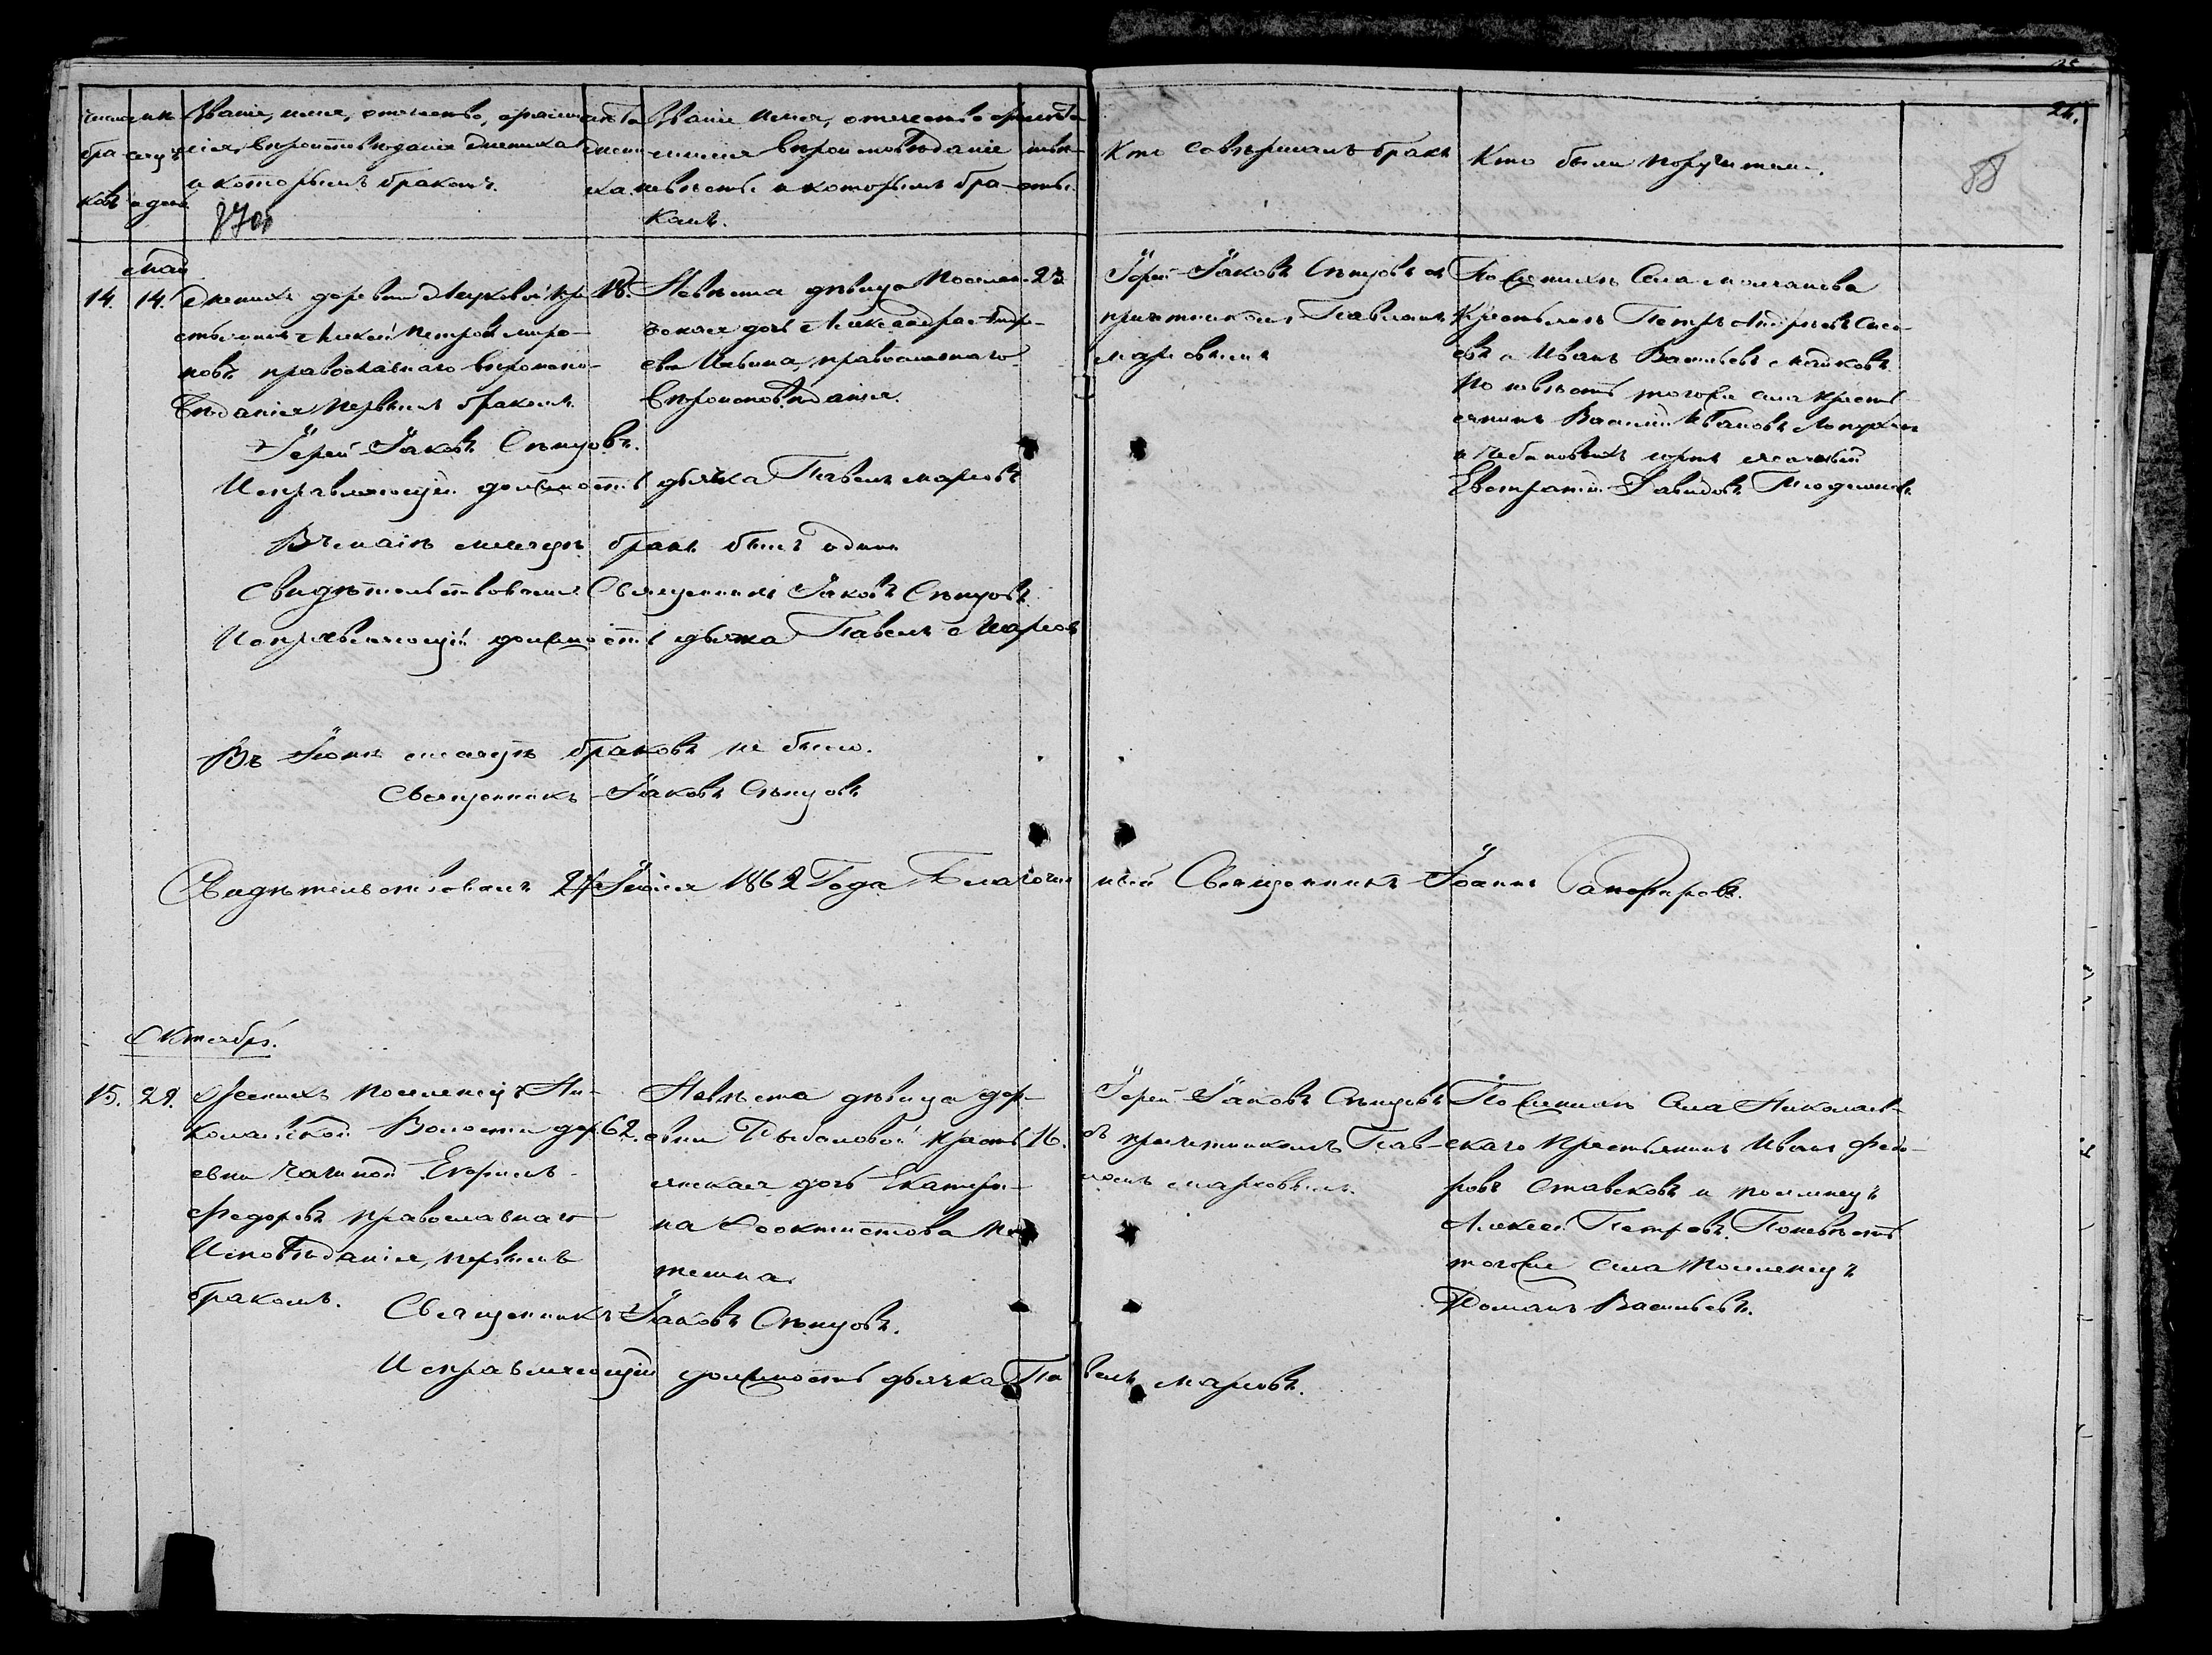 24.
88
Число бра ковъ
мѣсяцъ и день
Званіе, имя, отечество, фами
лія, вѣроисповѣданіе жениха
и которымъ бракомъ.
лѣта жени ха.
Званіе имя, отечество
фамилія вѣроисповѣданіе
невѣсты и которымъ бра-
комъ.
лѣта невѣ-
сты.
Кто совѣршалъ бракъ
Кто были поручители.
Май
14. 14.
Женихъ деревни Жуковой кре
стьянинъ Алексѣй Петровъ Миро-
новъ православнаго вѣроиспо-
вѣданія первымъ бракомъ.
18.
Невѣста дѣвица Поселен-
ческая дочь Александра Андре-
ева Ильина, православнаго
вѣроисповѣданія.
23
Іерей Іаковъ Слѣпцовъ съ
причетникомъ Павломъ
Марковымъ
По женихѣ Села Молчанова
Крестьянинъ Петръ Андреевъ
и Иванъ Васильевъ Майковъ.
По невѣстѣ тогоже села кресть
янинъ Василій Ивановъ
Евстратій Давидовъ
Іерей Іаковъ Слѣпцовъ.
Исправляющій должность дьячка Павелъ Марковъ
Въ маіѣ месяцѣ бракъ былъ одинъ
Свидѣтельствовалъ Священникъ Іаковъ Слѣпцовъ.
Исправляющій должность дьячка Павелъ Марковъ
Въ Іюнѣ месяцѣ браковъ не было.
Священникъ Іаковъ Слѣпцовъ
Свидѣтельствовалъ 27 Іюля 1862 Года Благочин ный Священникъ Іоаннъ
Октябрь.
15. 29.
Женихъ поселенецъ Ни-
колаевской Волости дер
евни Чашной Ефримъ
Федоровъ православнаго
Исповѣданія, первымъ
бракомъ.
62.
Невѣста дѣвица дер-
евни Рыбаловой крест
янская дочь Екатери-
на Феоктистова
16.
Іерей Іаковъ Слѣпцовъ
съ причетникомъ Пав-
ломъ Марковымъ.
По женихѣ Села Николаев-
скаго Крестьянинъ Иванъ Федо-
ровъ Ставсковъ и поселенецъ
Алексей Петровъ. По невѣстѣ
тогоже села поселенецъ
Романъ Васильевъ.
Священникъ Іаковъ Слѣпцовъ.
Исправляющій должность дьячка Павелъ Марковъ.